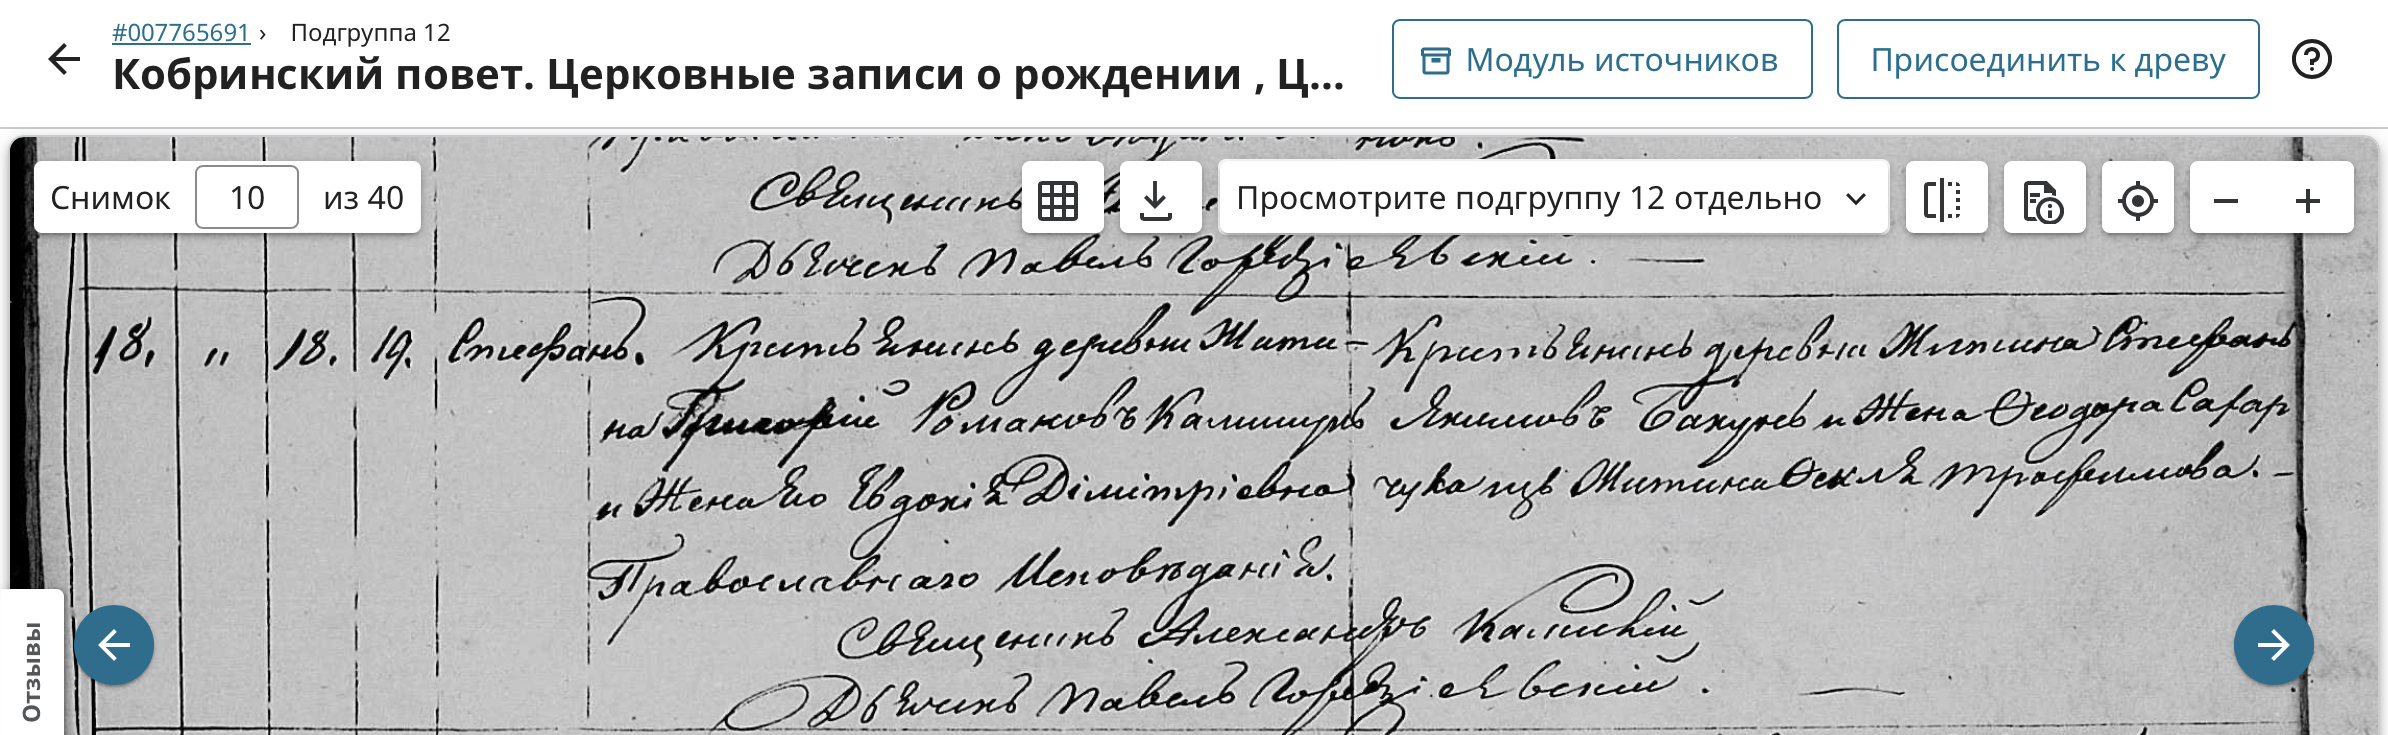 #007765691 › Подгруппа 12
Кобринский повет. Церковные записи о рождении , Ц...
Модуль источников
Присоединить к древу
Снимок 10 из 40
Просмотрите подгруппу 12 отдельно
Священникъ
Дьячекъ Павелъ
18. " 18. 19. Стефанъ. Крестьянинъ деревни Жити-
на Григорій Романовъ Калишукъ
и Жена Его Евдокія Дімітріевна
Православнаго Исповѣданія.
Крестьянинъ деревни Житина Стефанъ
Якимовъ Бакунъ и Жена Ѳеодора Сахар
чука изъ Житина Ѳекля Трофимова. -
Священникъ Александръ
Дьячекъ Павелъ
Отзывы